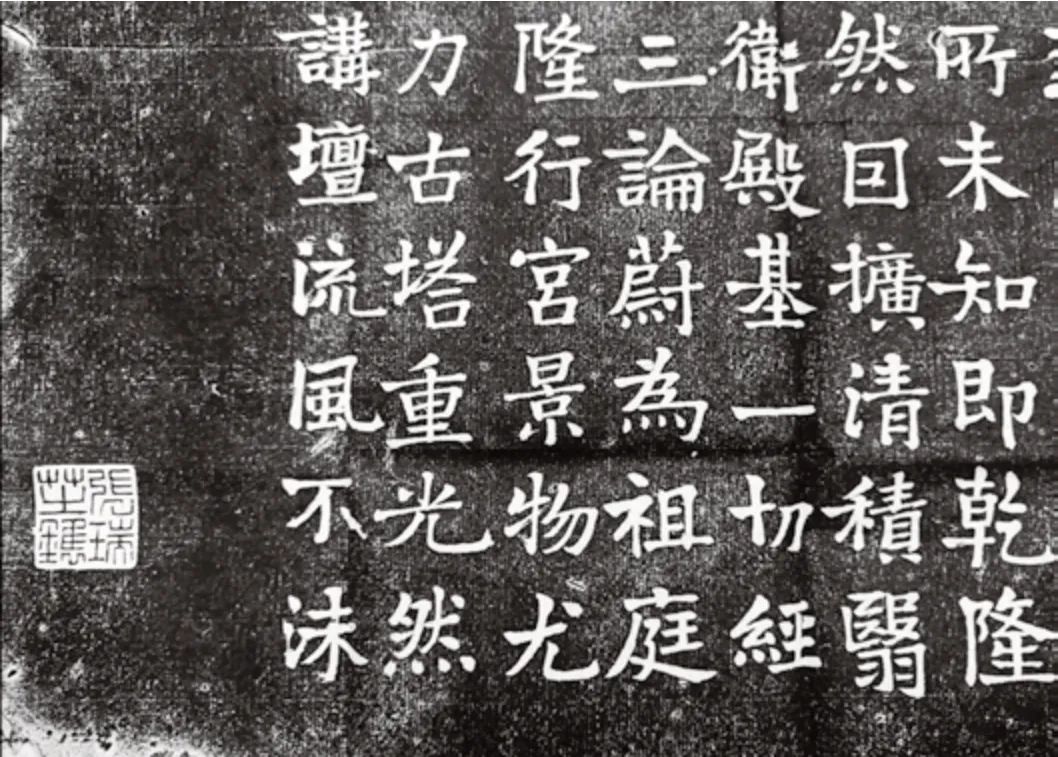 所未知即乾隆
然囙擴清積翳
衛殿基一切經
三論蔚為祖庭
隆行宮景物尤
力古塔重光然
講壇流風不沫
張瑞
芝鐫